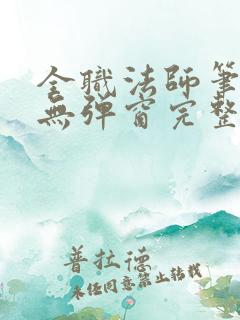 全職法師筆
無彈窗完整
普拉德
未經同意禁止轉載